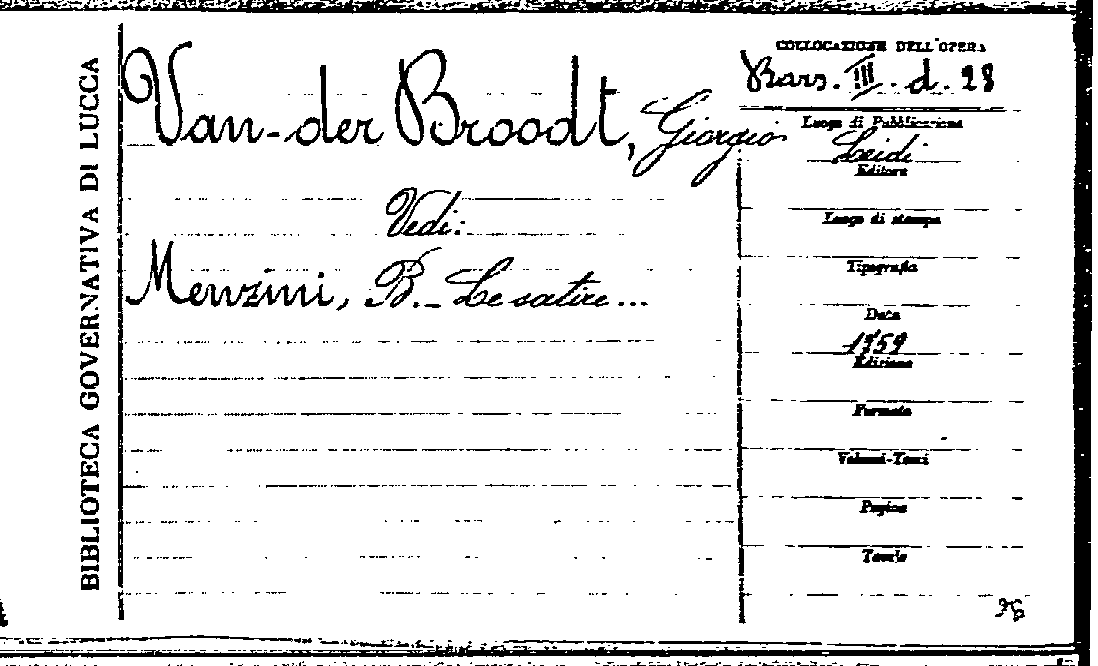 BIBLIOTECA GOVERNATIVA DI LUCCA
Van-der Broodt, Giorgio
Vedi:
Menzini, B. - Le satire...
COLLOCAZIONE DELL'OPERA
III. d. 28
Luogo di Pubblicazione
Leidi
Editore
Luogo di stampa
Tipografia
Data
1759
Edizione
Formato
Volumi-Tomi
Pagine
Tavole